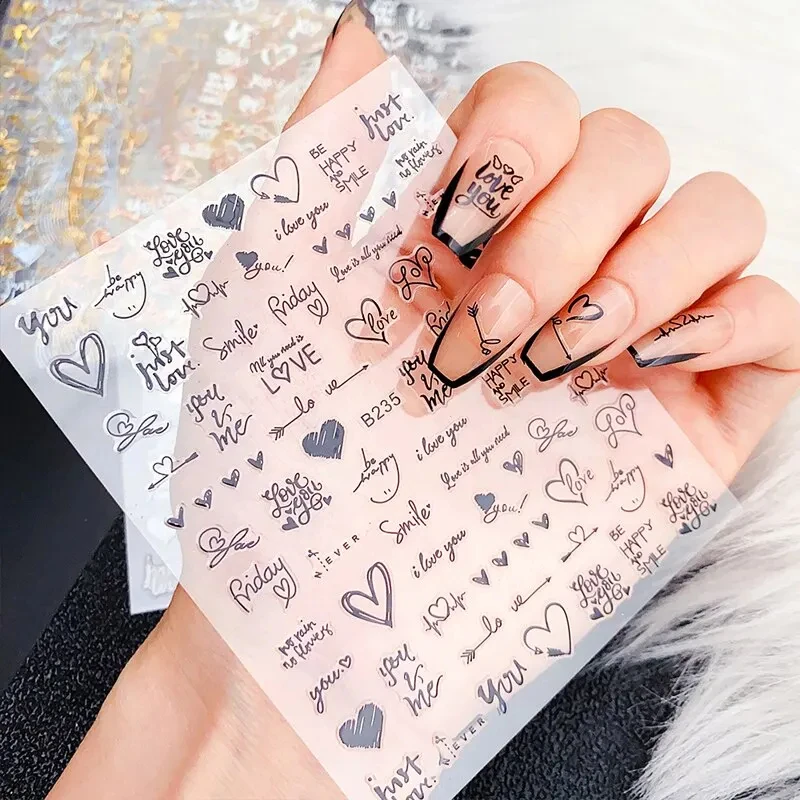 just
love.
BE
HAPPY
AND
SMILE
no rain
no flowers
love
you
Love
you
i love you
be
happy
you!
Love is all you need
you
Friday
Smile
just
love.
All you need is
LOVE
love
you
&
me
love
lo ve
B235
you
&
me
BE
HAPPY
AND
SMILE
i love you
be
happy
Love is all you need
Love
you
Smile
you!
love
be
happy
Love
you
NEVER
i love you
BE
HAPPY
AND
SMILE
Friday
no rain
no flowers
lo ve
Love
you
you
you
&
me
you
NEVER
just
love.